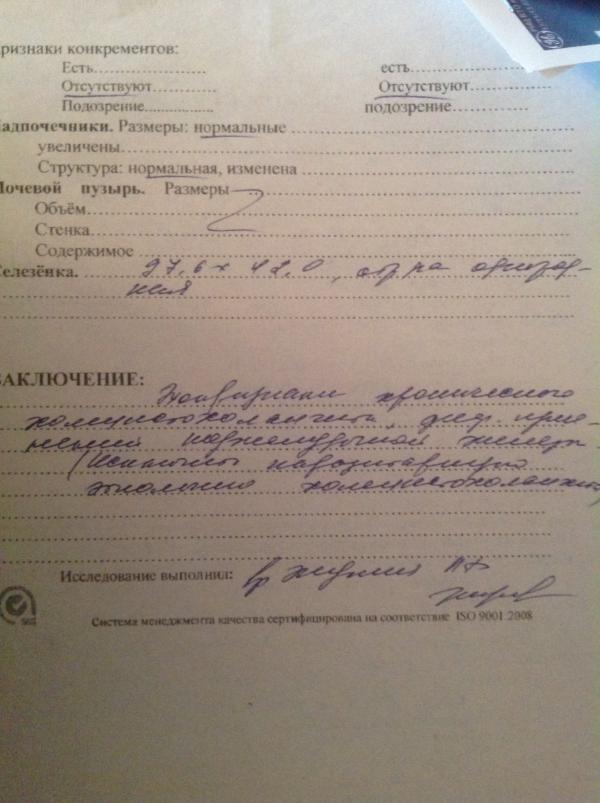 ризнаки конкрементов:
Есть........................ есть........................
Отсутствуют............. Отсутствуют.............
Подозрение............... подозрение...............
адпочечники. Размеры: нормальные
увеличены
Структура: нормальная, изменена
очевой пузырь. Размеры
Объём
Стенка
Содержимое
елезёнка. 97,6 х 42,0, стр-ра однород-
ная
ЗАКЛЮЧЕНИЕ:
Эхопризнаки хронического
холецистохолангита, диф.
поджелудочной железы
(Исключить паразитарную
этиологию холецистохолангита)
Исследование выполнил: вр
SGS
Система менеджмента качества сертифицирована на соответствие ISO 9001 2008